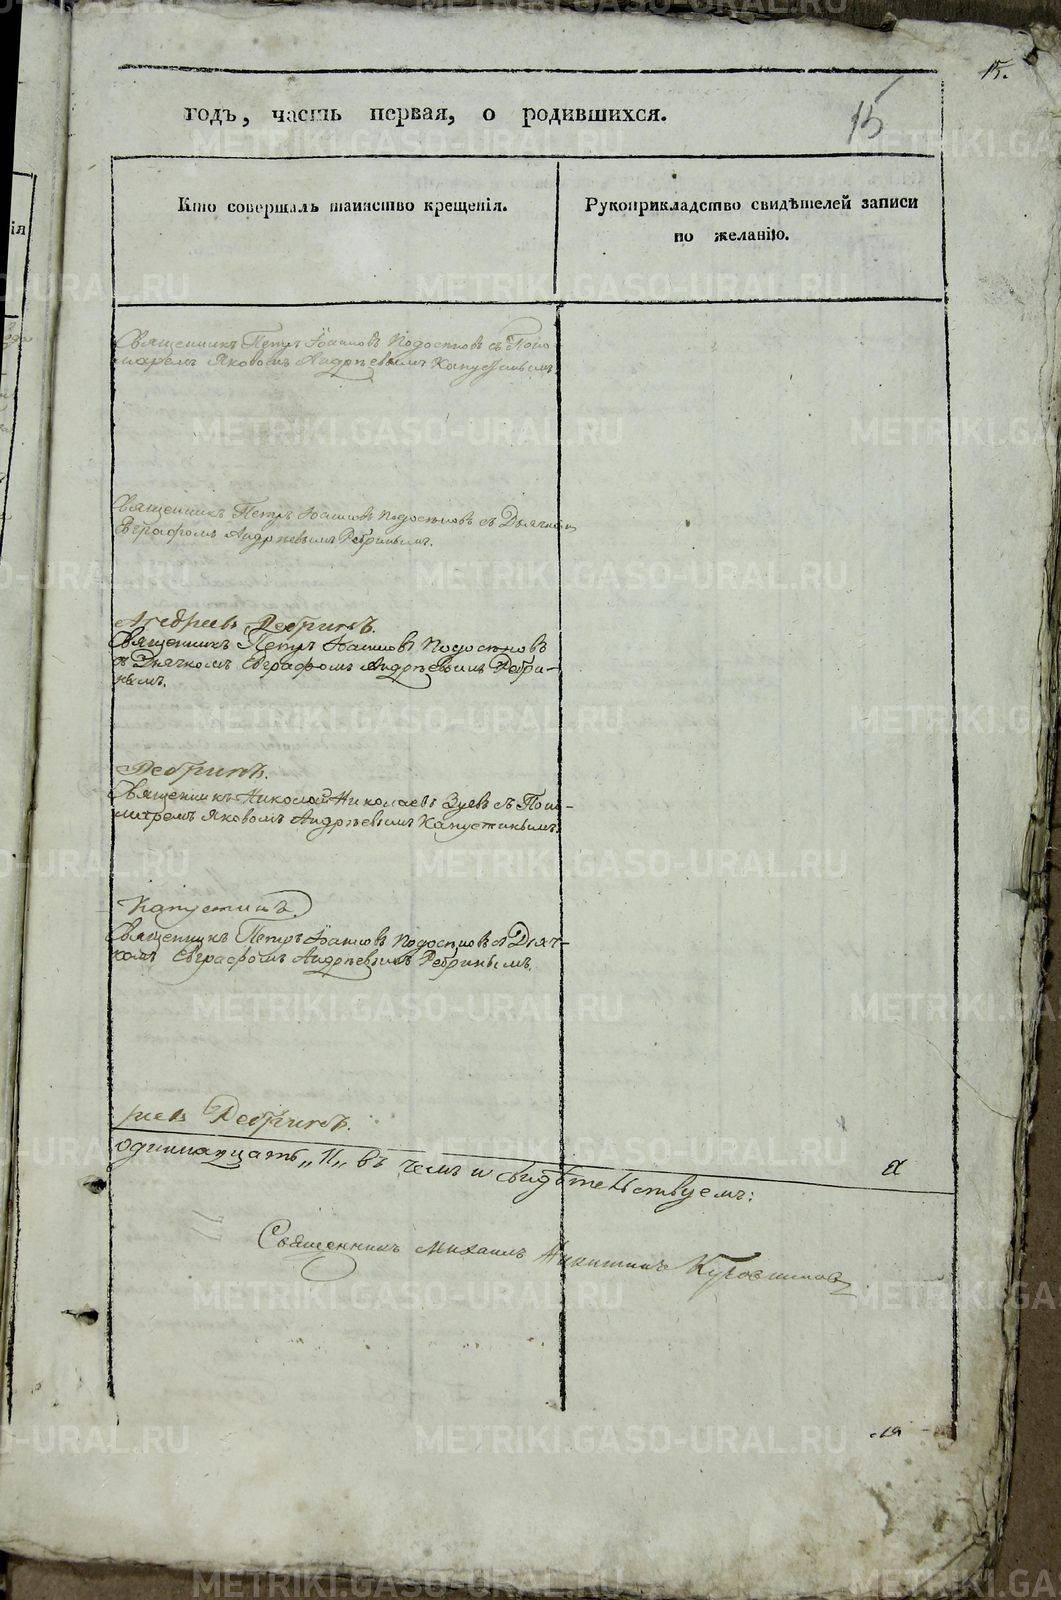 15.
годъ, часть первая, о родившихся.
15
Кто совершалъ таинство крещенія.
Рукоприкладство свидѣтелей записи
по желанію.
ія
Священникъ Петръ Іоанновъ Подосеновъ съ Поно
маремъ Яковомъ Андрѣевымъ Капустинымъ
Священникъ Петръ Іоанновъ Подосеновъ съ Дьячком
Евграфомъ Андрѣевымъ Ребринымъ.
Андреевъ Ребринъ.
Священникъ Петръ Іоанновъ Подосеновъ
съ Дьячкомъ Евграфомъ Андрѣевымъ Ребри-
нымъ.
Ребринъ.
Священникъ Николай Николаевъ Зуевъ съ Поно-
маремъ Яковомъ Андрѣевымъ Капустинымъ.
Капустинъ.
Священникъ Петръ Іоанновъ Подосеновъ съ Дьяч-
комъ Евграфомъ Андрѣевымъ Ребринымъ.
реевъ Ребринъ.
одиннадцать „11„ въ чемъ и свидѣтельствуемъ:
Священникъ Михаилъ Никитинъ
METRIKI.GASO-URAL.RU